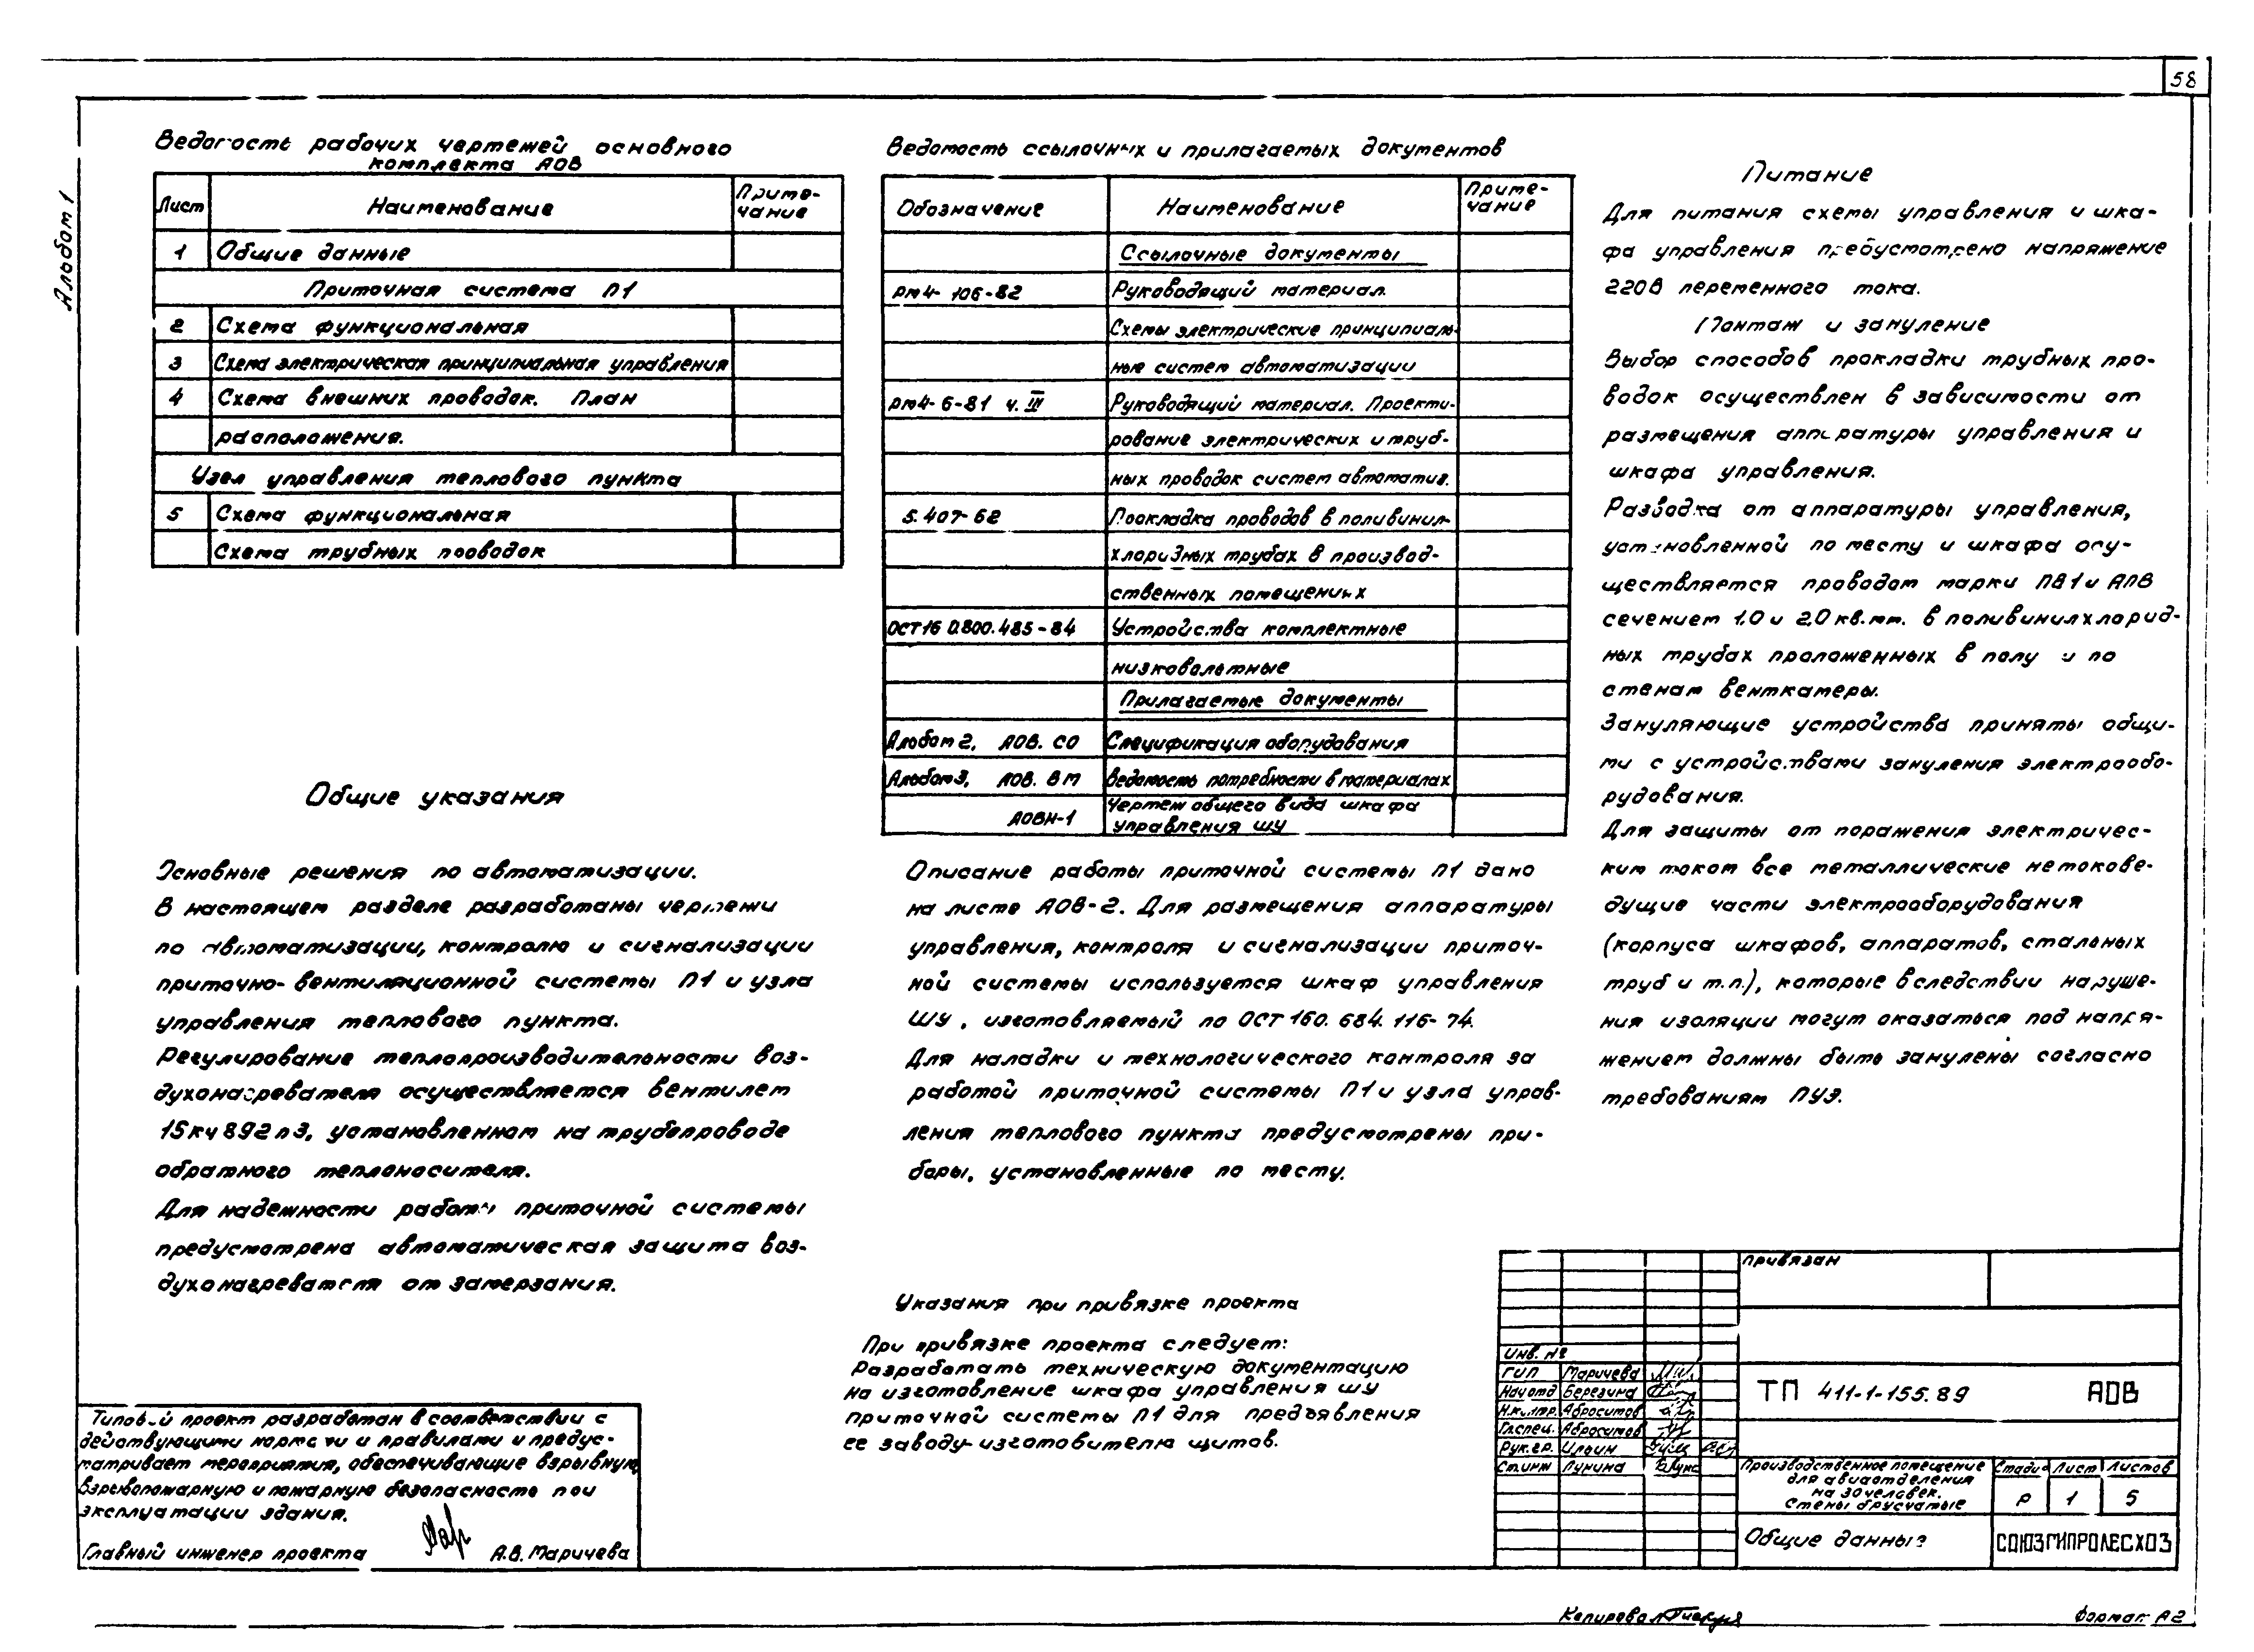 58
Альбом 1
Ведомость рабочих чертежей основного
комплекта АОВ
Лист Наименование Приме-
чание
1 Общие данные
Приточная система П1
2 Схема функциональная
3 Схема электрическая принципиальная управления
4 Схема внешних проводок. План
расположения.
Узел управления теплового пункта
5 Схема функциональная
Схема трубных проводок
Общие указания
Основные решения по автоматизации.
В настоящем разделе разработаны чертежи
по автоматизации, контролю и сигнализации
приточно-вентиляционной системы П1 и узла
управления теплового пункта.
Регулирование теплопроизводительности воз-
духонагревателя осуществляется вентилем
15кч892п3, установленном на трубопроводе
обратного теплоносителя.
Для надежности работы приточной системы
предусмотрена автоматическая защита воз-
духонагревателя от замерзания.
Типовой проект разработан в соответствии с
действующими нормами и правилами и предус-
матривает мероприятия, обеспечивающие взрывную,
взрывопожарную и пожарную безопасность при
эксплуатации здания.
Главный инженер проекта А.В. Маричева
Ведомость ссылочных и прилагаемых документов
Обозначение Наименование Приме-
чание
Ссылочные документы
РМ4-106-82 Руководящий материал.
Схемы электрические принципиаль-
ные систем автоматизации
РМ4-6-81 ч. III Руководящий материал. Проекти-
рование электрических и труб-
ных проводок систем автоматиз.
5.407-62 Прокладка проводов в поливинил-
хлоридных трубах в производ-
ственных помещениях
ОСТ16 0.800.485-84 Устройства комплектные
низковольтные
Прилагаемые документы
Альбом 2, АОВ. СО Спецификация оборудования
Альбом 3, АОВ. ВМ Ведомость потребности в материалах
АОВН-1 Чертеж общего вида шкафа
управления ШУ
Описание работы приточной системы П1 дано
на листе АОВ-2. Для размещения аппаратуры
управления, контроля и сигнализации приточ-
ной системы используется шкаф управления
ШУ, изготовляемый по ОСТ 160. 684. 116-74.
Для наладки и технологического контроля за
работой приточной системы П1 и узла управ-
ления теплового пункта предусмотрены при-
боры, установленные по месту.
Указания при привязке проекта
При привязке проекта следует:
Разработать техническую документацию
на изготовление шкафа управления ШУ
приточной системы П1 для предъявления
ее заводу-изготовителю щитов.
Питание
Для питания схемы управления и шка-
фа управления предусмотрено напряжение
220В переменного тока.
Монтаж и зануление
Выбор способов прокладки трубных про-
водок осуществлен в зависимости от
размещения аппаратуры управления и
шкафа управления.
Разводка от аппаратуры управления,
установленной по месту и шкафа осу-
ществляется проводом марки ПВ1 и АПВ
сечением 1.0 и 2.0 кв.мм. в поливинилхлорид-
ных трубах проложенных в полу и по
стенам венткамеры.
Зануляющие устройства приняты общи-
ми с устройствами зануления электрообо-
рудования.
Для защиты от поражения электричес-
ким током все металлические нетокове-
дущие части электрооборудования
(корпуса шкафов, аппаратов, стальных
труб и т.п.), которые вследствии наруше-
ния изоляции могут оказаться под напря-
жением должны быть занулены согласно
требованиям ПУЭ.
привязан
Инв. №
ГИП Маричева
Нач отд Березина
Н.контр. Абросимов
Гл.спец. Абросимов
Рук.гр. Ильин
Ст.инж Лунина
ТП 411-1-155.89 АОВ
Производственное помещение
для авиаотделения
на 30 человек.
Стены брусчатые
Стадия Лист Листов
Р 1 5
Общие данные
СОЮЗГИПРОЛЕСХОЗ
Копировал
Формат А2